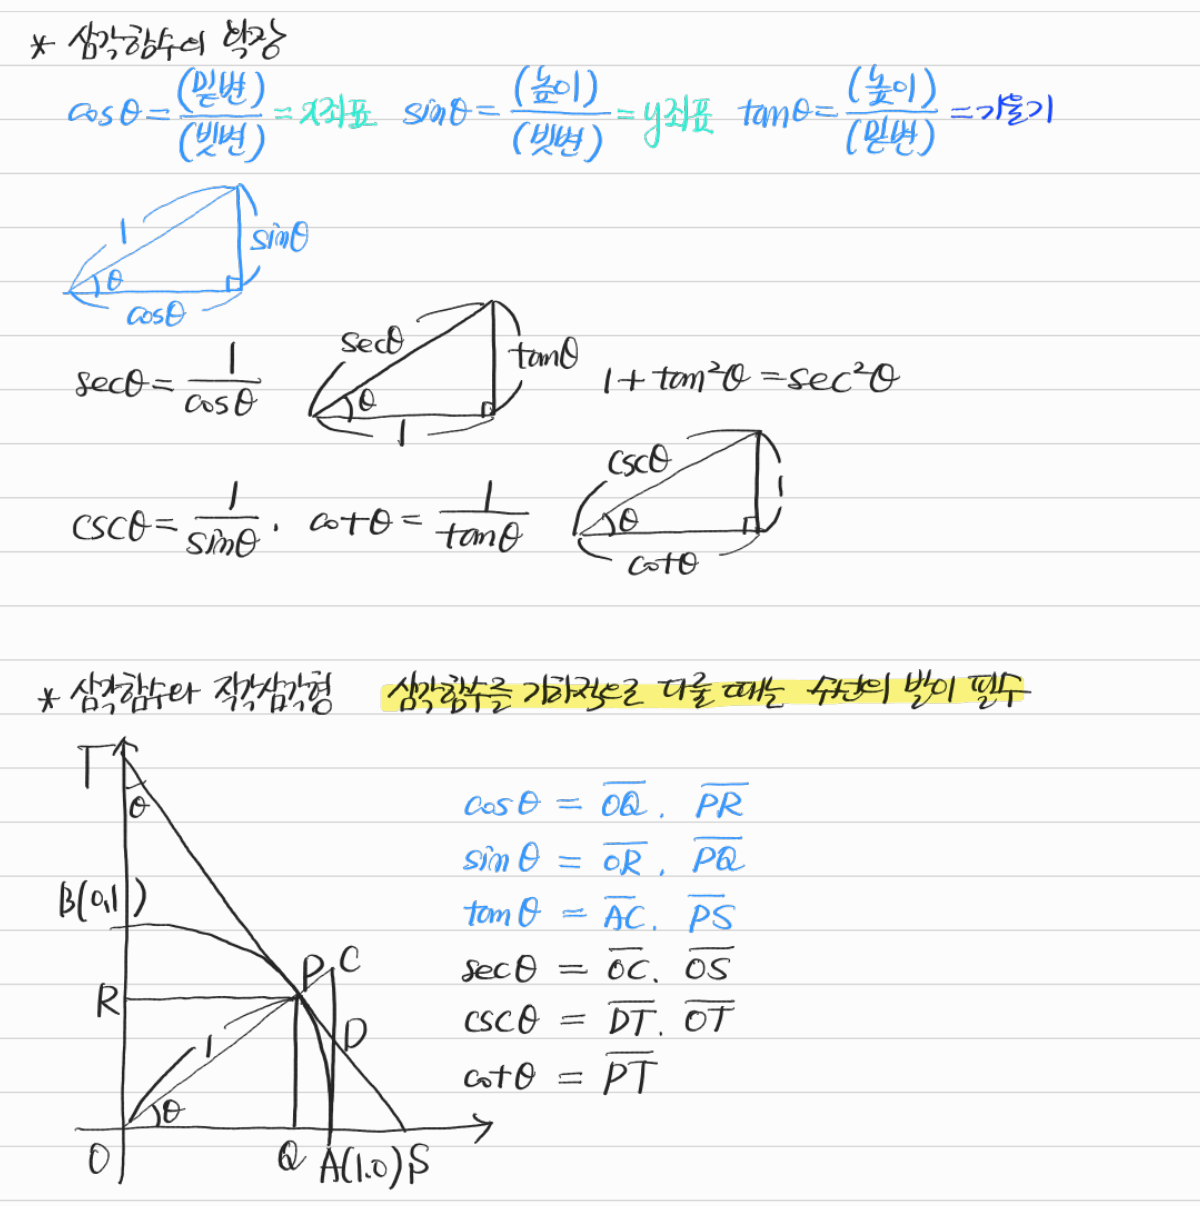 * 삼각함수의 확장
cosθ = (밑변)/(빗변) = x좌표 sinθ = (높이)/(빗변) = y좌표 tanθ = (높이)/(밑변) = 기울기
1 θ sinθ
cosθ
secθ = 1/cosθ secθ θ tanθ 1 1 + tan²θ = sec²θ
cscθ = 1/sinθ . cotθ = 1/tanθ cscθ θ 1 cotθ
* 삼각함수와 직각삼각형 삼각함수를 기하적으로 다룰 때는 수선의 발이 필수
T
θ
cosθ = O̅Q̅ . P̅R̅
sinθ = O̅R̅ . P̅Q̅
B(0,1)
tanθ = A̅C̅ . P̅S̅
P C
secθ = O̅C̅ . O̅S̅
R
1 D
cscθ = D̅T̅ . O̅T̅
cotθ = P̅T̅
θ
O Q A(1.0) S